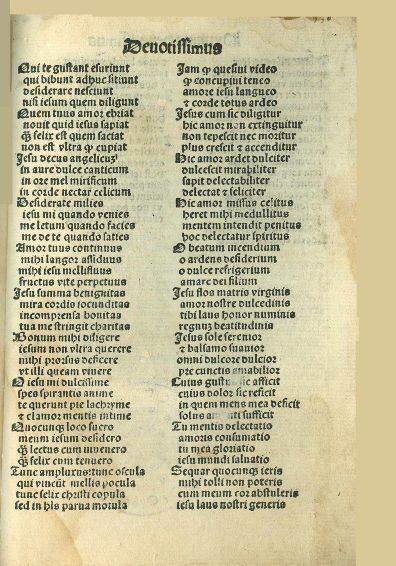 Deuotissimus
Qui te gustant esuriunt
qui bibunt adhuc sitiunt
desiderare nesciunt
nisi iesum quem diligunt
Quem tuus amor ebriat
nouit quid iesus sapiat
ꝙ̃ felix est quem saciat
non est vltra ꝙ cupiat
Jesu decus angelicū
in aure dulce canticum
in ore mel mirificum
in corde nectar celicum
Desiderate milies
iesu mi quando venies
me letum quando facies
me de te quando saties
Amor tuus continuus
mihi langor assiduus
mihi iesu mellifluus
fructus vite perpetuus
Jesu summa benignitas
mira cordis iocunditas
incomprensa bonitas
tua me stringit charitas
Bonum mihi diligere
iesum non vltra querere
mihi prorsus deficere
vt illi queam viuere
O iesu mi dulcissime
spes spirantis anime
te querunt pie lachryme
⁊ clamor mentis intime
Quocunqꝫ loco fuero
meum iesum desidero
ꝙ̃ letus cum inuenero
ꝙ̃ felix cum tenuero
Tunc amplexus tunc oscula
qui vincūt mellis pocula
tunc felix christi copula
sed in his parua morula
Jam ꝙ quesiui video
ꝙ concupiui teneo
amore iesu langueo
⁊ corde totus ardeo
Jesus cum sic diligitur
hic amor non extinguitur
non tepescit nec moritur
plus crescit ⁊ accenditur
Hic amor ardet dulciter
dulcescit mirabiliter
sapit delectabiliter
delectat ⁊ feliciter
Hic amor missus celitus
heret mihi medullitus
mentem intendit penitus
hoc delectatur spiritus
O beatum incendium
o ardens desiderium
o dulce refrigerium
amare dei filium
Jesu flos matris virginis
amor nostre dulcedinis
tibi laus honor numinis
regnū beatitudinis
Jesus sole serenior
⁊ balsamo suauior
omni dulcore dulcior
pre cunctis amabilior
Cuius gustus sic afficit
cuius dolor sic reficit
in quem mens mea deficit
solus sufficit
Tu mentis delectatio
amoris consumatio
tu mea gloriatio
iesu mundi saluatio
Sequar quocunqꝫ ieris
mihi tolli non poteris
cum meum cor abstuleris
iesu laus nostri generis